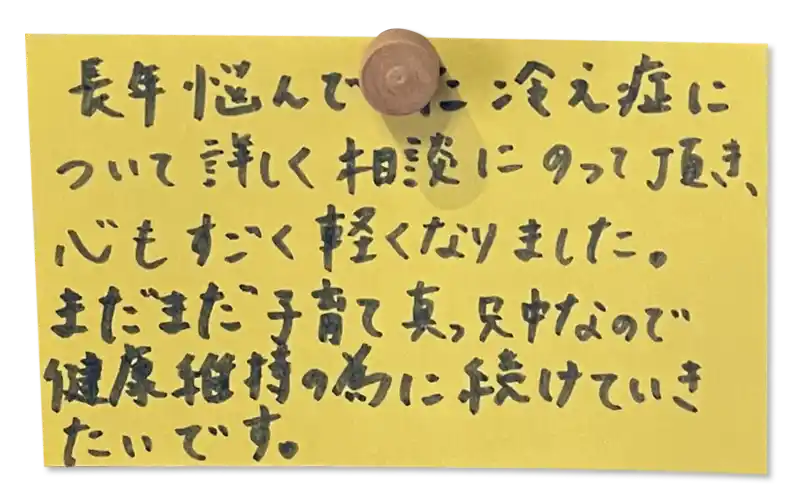 長年悩んでた冷え症に
ついて詳しく相談にのって頂き、
心もすごく軽くなりました。
まだまだ子育て真っ只中なので
健康維持の為に続けていき
たいです。